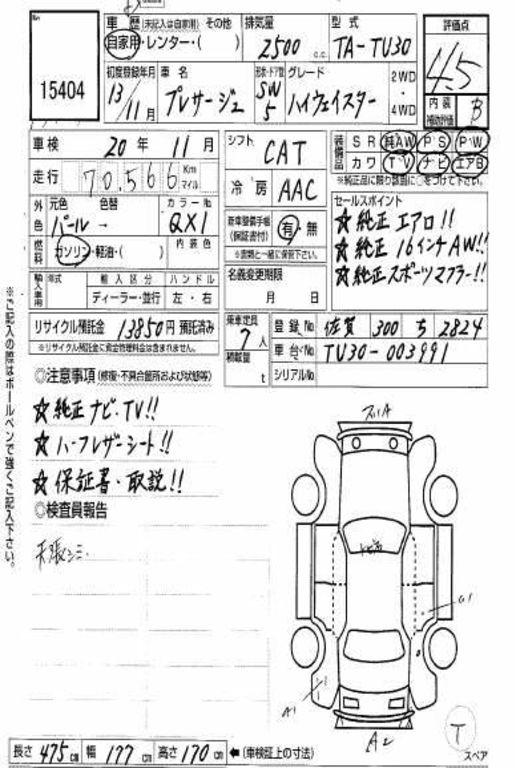 No.
15404
車歴 (未記入は自家用) その他
自家用・レンター・( )
排気量
2500 c.c.
型式
TA-TU30
評価点
4.5
初度登録年月
13/11月
車名
プレサージュ
形状・ドア数
SW 5
グレード
ハイウェイスター
2WD
・
4WD
内装
補助評価
B
車検 20年 11月
走行 70,566 Km
マイル
シフト
CAT
冷房 AAC
装備品
SR 純AW PS PW
カワ TV ナビ エアB
※純正品に限り該当に○をつけて下さい。
外色
元色 色替
パール→
カラーNo
QX1
燃料
ガソリン・軽油・( )
内装色
新車整備手帳
(保証書付)
有・無
※書類と一緒に保管下さい。
セールスポイント
★純正エアロ!!
★純正16インチAW!!
★純正スポーツマフラー!!
輸入車用
年式 輸入区分 ハンドル
ディーラー・並行 左・右
名義変更期限
月 日
リサイクル預託金 13850円 預託済み
※リサイクル預託金に資金管理料金は含まれません。
乗車定員
7人
積載量
t
登録No 佐賀 300 ち 2824
車台No TU30-003991
シリアルNo
◎注意事項 (修復・不具合箇所および状態等)
★純正ナビ・TV!!
★ハーフレザーシート!!
★保証書・取説!!
◎検査員報告
天張シミ・
A1
A1
A2
T
スペア
長さ 475cm 幅 177cm 高さ 170cm ←(車検証上の寸法)
※ご記入の際はボールペンで強くご記入下さい。